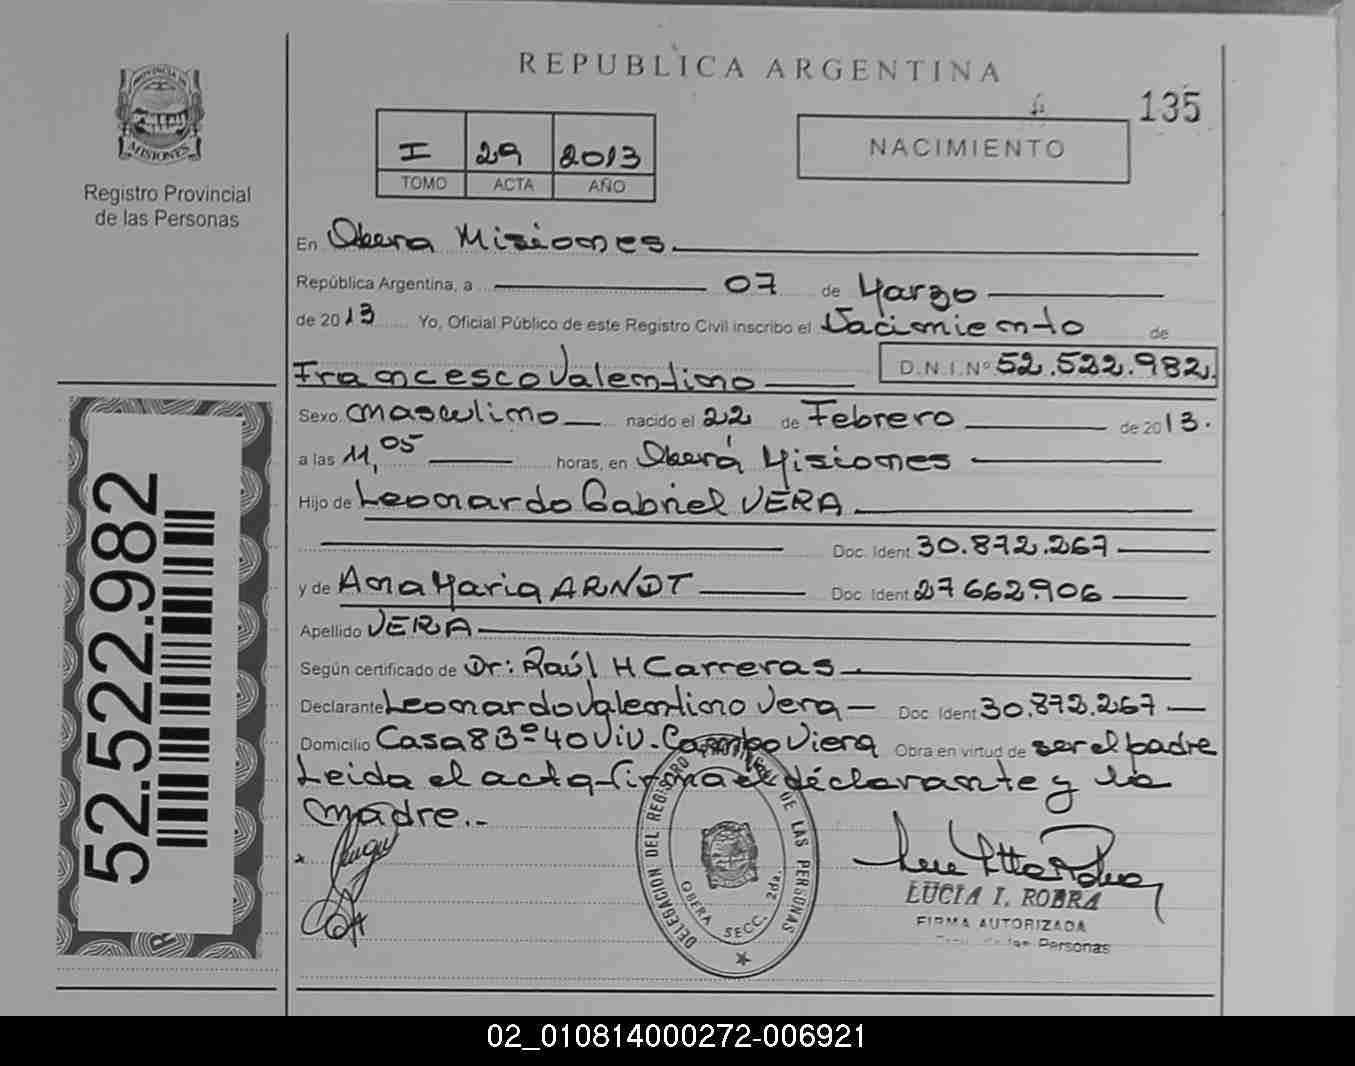 REPUBLICA ARGENTINA
135
PROVINCIA DE
MISIONES
Registro Provincial
de las Personas
I 29 2013
TOMO ACTA AÑO
NACIMIENTO
En Oberá Misiones
República Argentina, a 07 de Marzo
de 2013 Yo, Oficial Público de este Registro Civil inscribo el Nacimiento de
Francesco Valentino D.N.I.Nº 52.522.982.
Sexo masculino nacido el 22 de Febrero de 2013.
a las 11,05 horas, en Oberá Misiones
Hijo de Leonardo Gabriel VERA
Doc. Ident. 30.872.267
y de Ana Maria ARNDT Doc. Ident 27662.906
Apellido VERA
Según certificado de Dr: Raúl H Carreras.
Declarante Leonardo Valentino Vera Doc. Ident 30.872.267
Domicilio Casa 83 º 40 Viv. Campo Viera Obra en virtud de ser el padre
Leida el acta firma el declarante y la
madre.-
52.522.982
DELEGACION DEL REGISTRO PROVINCIAL DE LAS PERSONAS
OBERA SECC. 2da.
LUCIA I. ROBRA
FIRMA AUTORIZADA
de las Personas
02_010814000272-006921